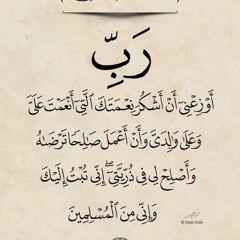 رَبِّ
أَوْزِعْنِىٓ أَنْ أَشْكُرَ نِعْمَتَكَ ٱلَّتِىٓ أَنْعَمْتَ عَلَىَّ
وَعَلَىٰ وَٰلِدَىَّ وَأَنْ أَعْمَلَ صَٰلِحًا تَرْضَىٰهُ
وَأَصْلِحْ لِى فِى ذُرِّيَّتِىٓ ۖ إِنِّى تُبْتُ إِلَيْكَ
وَإِنِّى مِنَ ٱلْمُسْلِمِينَ